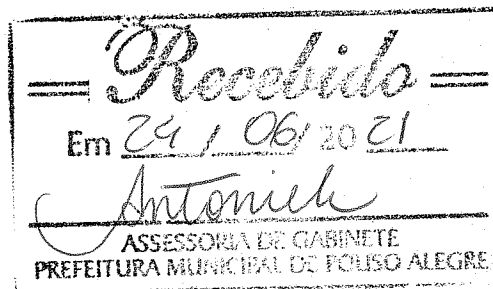 Recebido
Em 24 / 06 / 20 21
Antoniele
ASSESSORIA DE GABINETE
PREFEITURA MUNICIPAL DE POUSO ALEGRE